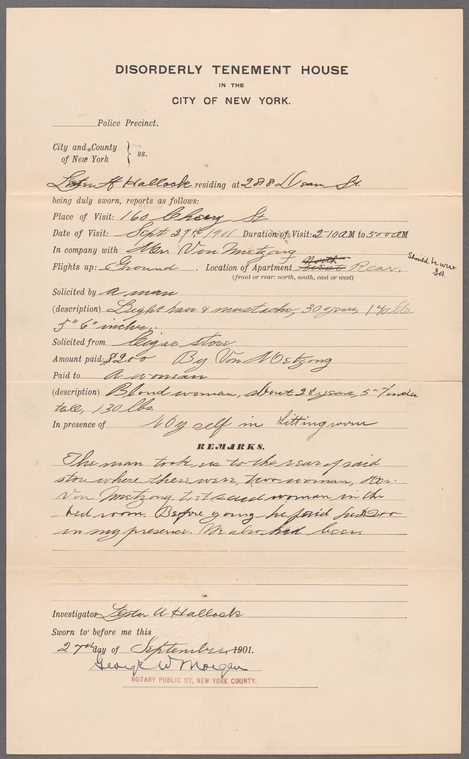 DISORDERLY TENEMENT HOUSE
IN THE
CITY OF NEW YORK.
Police Precinct.
City and County
of New York } ss.
Hallock residing at 288 Dean St.
being duly sworn, reports as follows:
Place of Visit: 160 Cherry St
Date of Visit: Sept 27th 1901 Duration of Visit: 2 10 AM to 5 00 AM
In company with Von Metzong
Flights up: Ground Location of Apartment Rear.
Should be
(front or rear; north, south, east or west)
Solicited by a man
(description) Light hair & mustache, 30 years,
5" 6" inches.
Solicited from Cigar store
Amount paid: $2.00 By Von Metzong
Paid to a woman
(description) Blond woman, about 28 years, 5-7
tall, 130 lbs.
In presence of Myself in Sitting room
REMARKS.
The man took us to the rear of said
store where there were two woman,
Von Metzong said woman in the
bed room. Before going he paid her
in my presence. We also had beer.
Investigator Hallock
Sworn to before me this
27 day of September 1901.
George W Morgan
NOTARY PUBLIC 177, NEW YORK COUNTY.